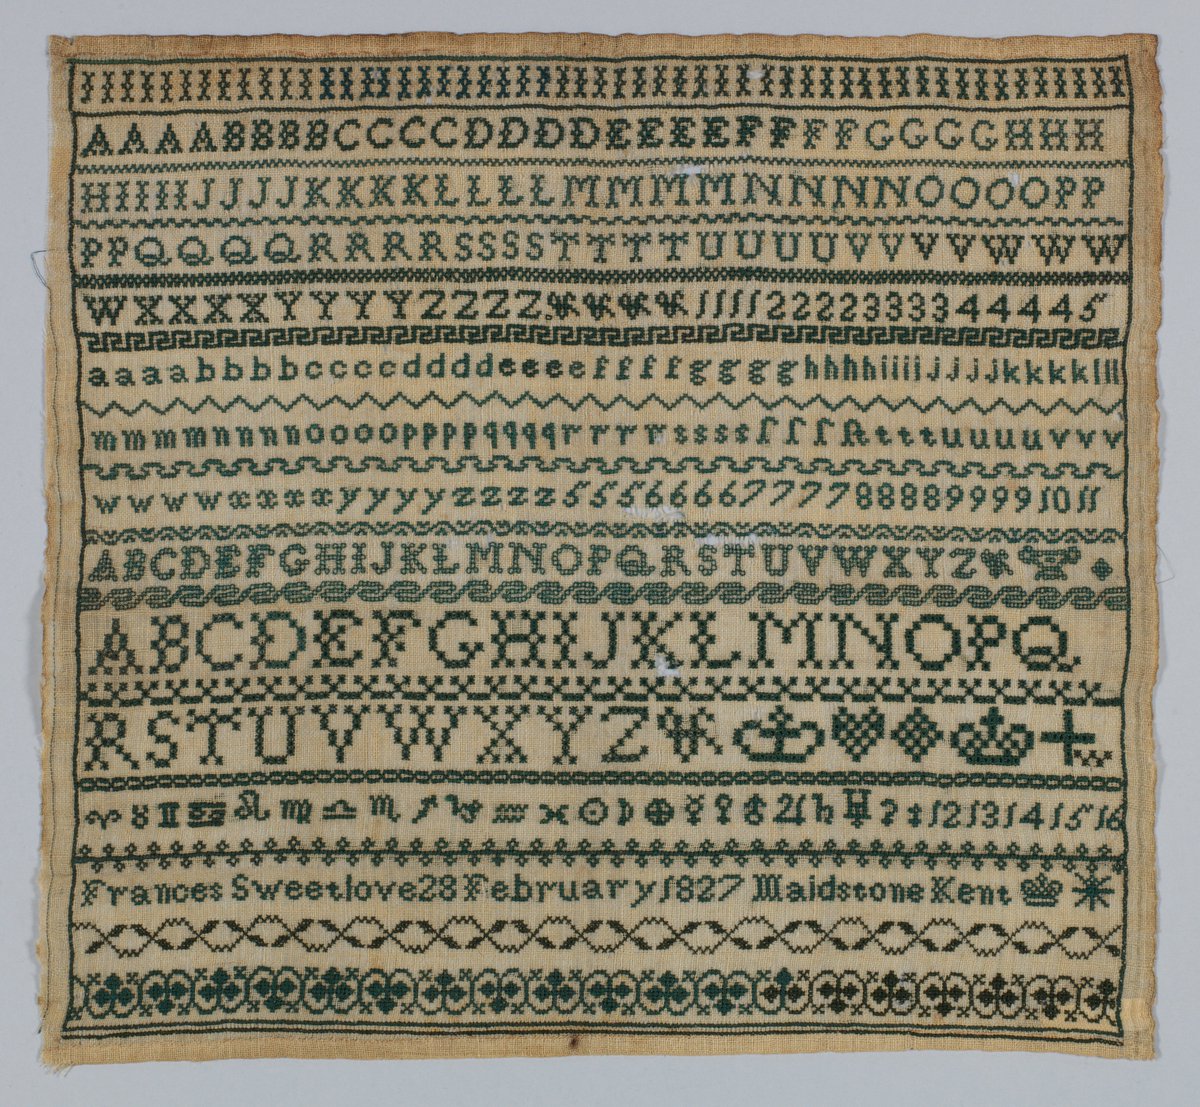 IIIIIIIIIIIIIIIIIIIIIIIIIIIIIIIIIIIIIIIIIIIIIIIIIIIIII
AAAABBBBCCCCDDDDEEEEFFFFGGGGHHH
HIIIIJJJJKKKKLLLLMMMMNNNNOOOOPP
PPQQQQRRRRSSSSTTTTUUUUVVVVWWW
WXXXXYYYYZZZZ&&&&11112222333344445
aaaabbbbccccddddeeeeffffgggghhhhiiiijjjjkkkklll
mmmmnnnnooooppppqqqqrrrrssssſſſſttttuuuuvvv
wwwwxxxxyyyyzzzz5556666777788889999 10 11
ABCDEFGHIJKLMNOPQRSTUVWXYZ&
ABCDEFGHIJKLMNOPQ
RSTUVWXYZ&
♈♉♊♋♌♍♎♏♐♑♒♓☉☽⊕☿♀♂♃♄♅ 12 13 14 15 16
Frances Sweetlove 28 February 1827 Maidstone Kent